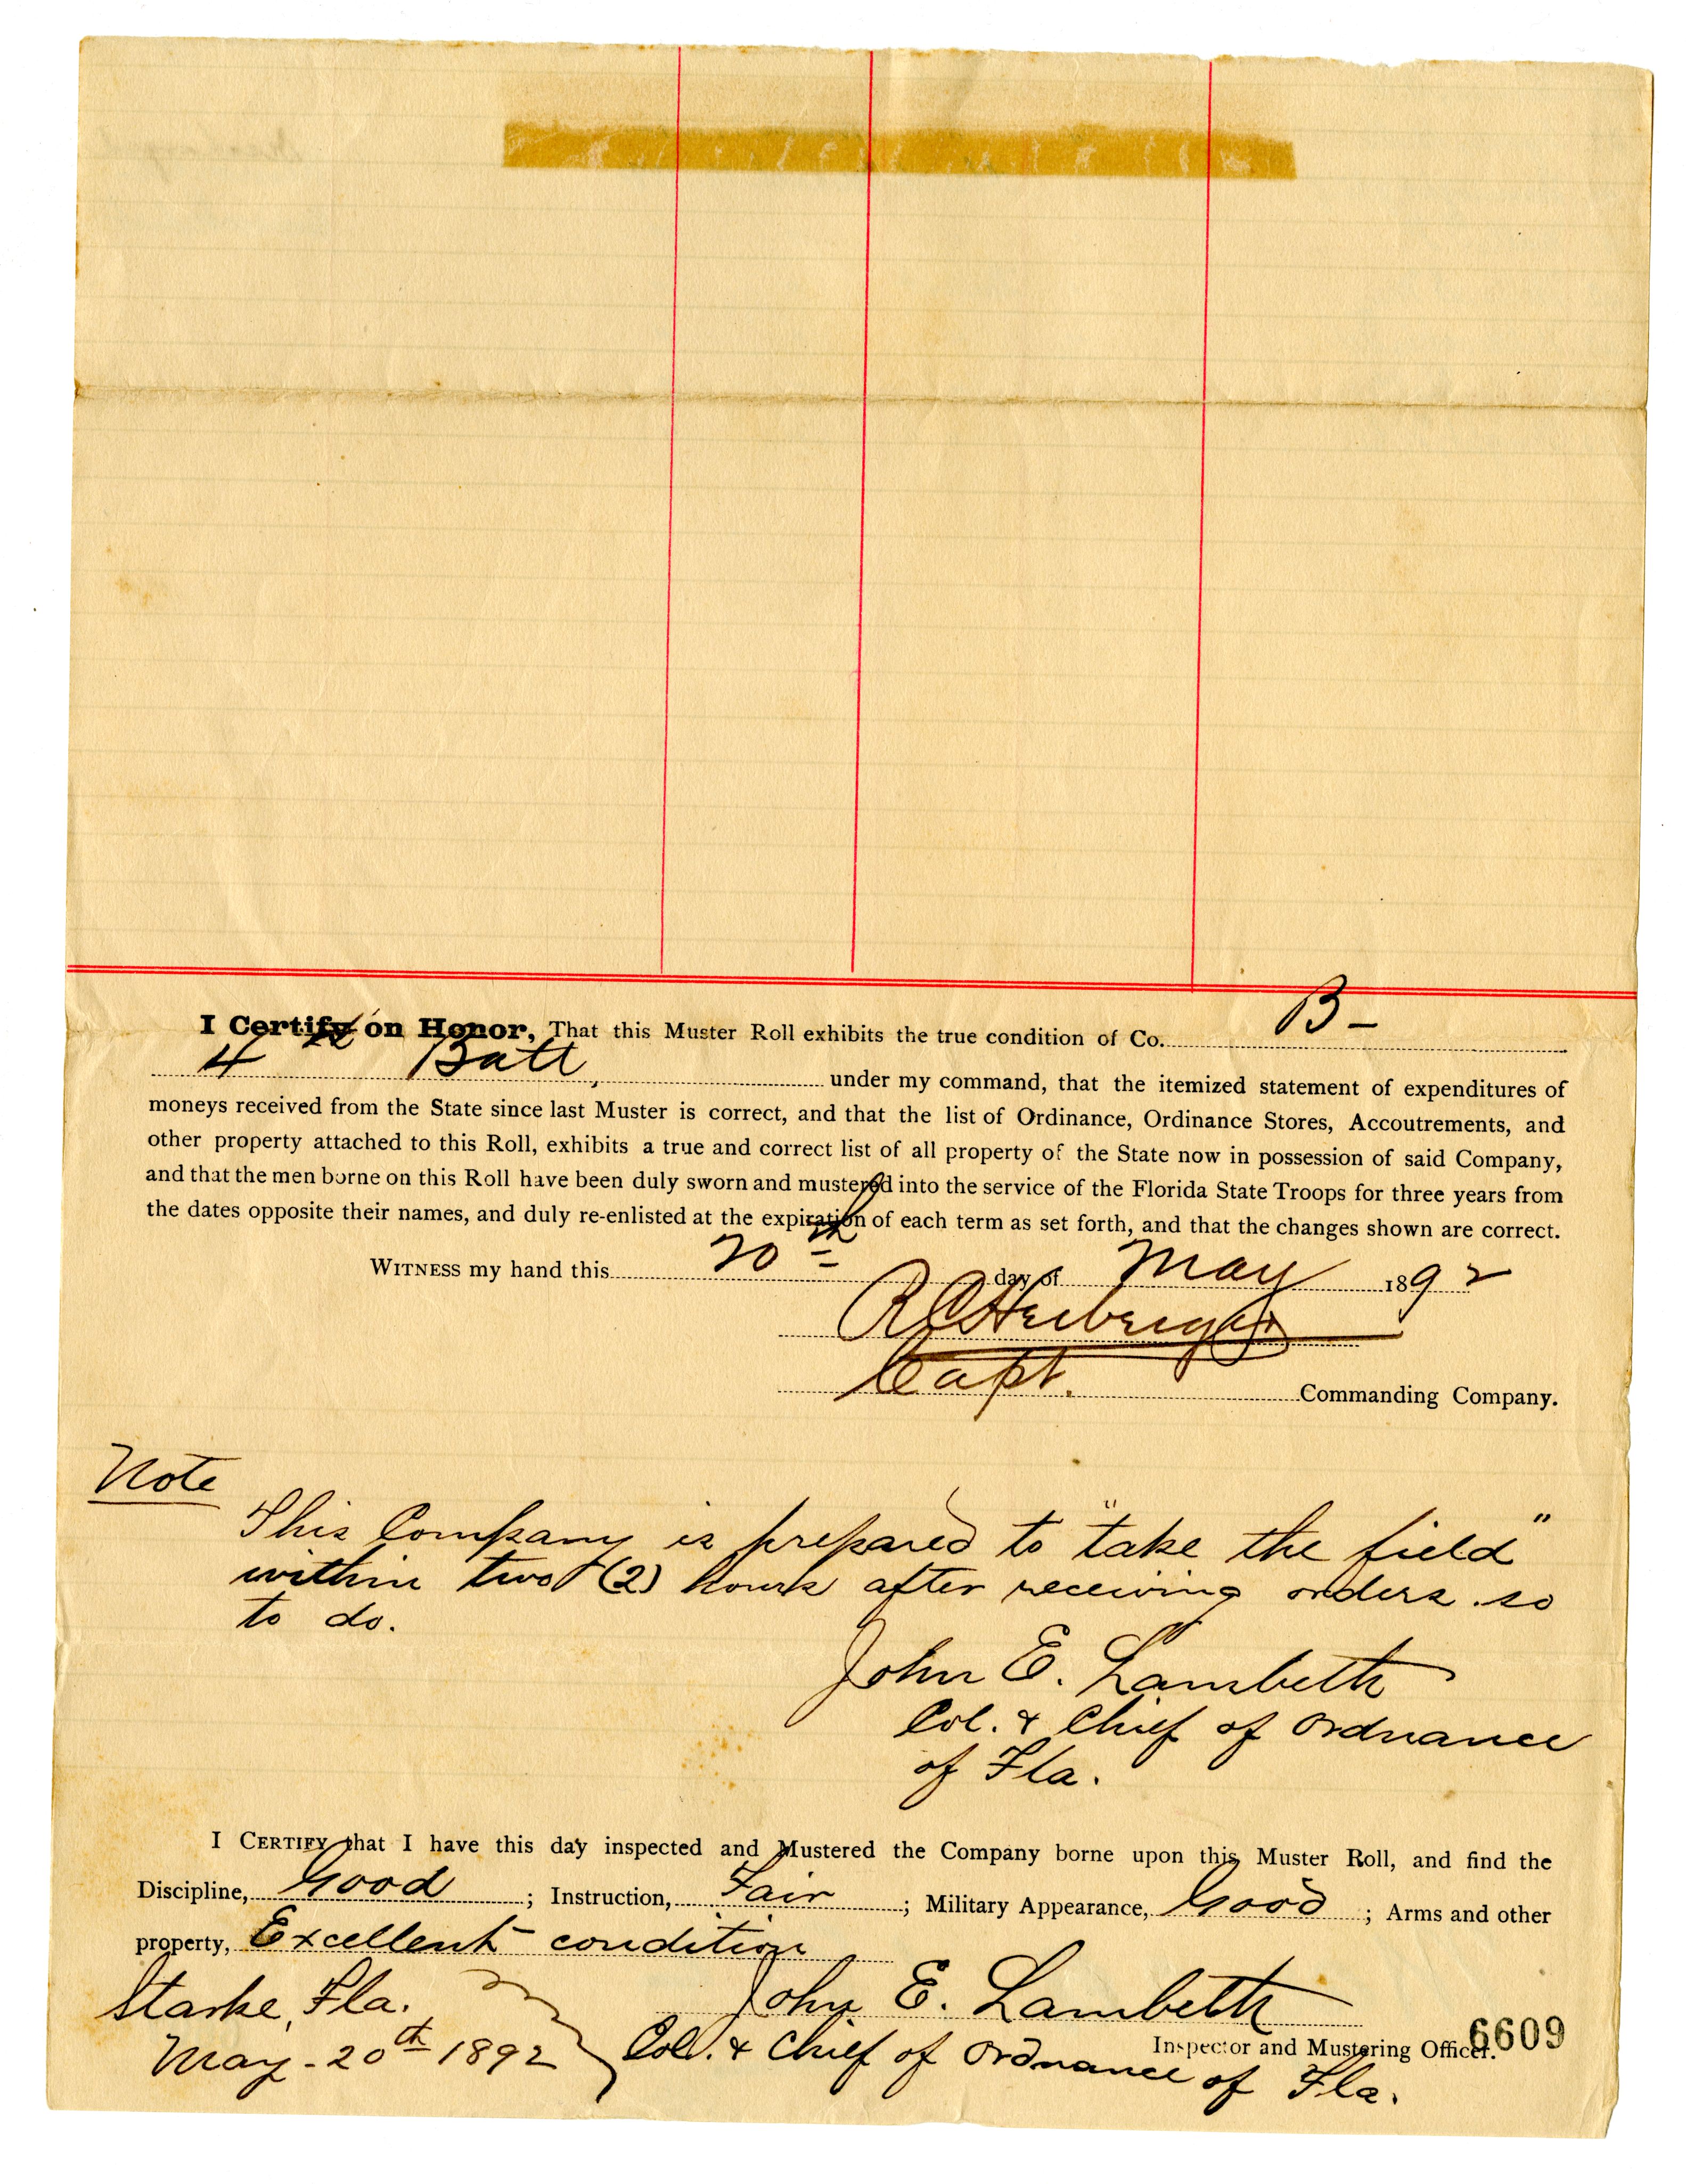 I Certify on Honor, That this Muster Roll exhibits the true condition of Co. B-
4th Batt, under my command, that the itemized statement of expenditures of
moneys received from the State since last Muster is correct, and that the list of Ordinance, Ordinance Stores, Accoutrements, and
other property attached to this Roll, exhibits a true and correct list of all property of the State now in possession of said Company,
and that the men borne on this Roll have been duly sworn and mustered into the service of the Florida State Troops for three years from
the dates opposite their names, and duly re-enlisted at the expiration of each term as set forth, and that the changes shown are correct.
WITNESS my hand this 20th day of May 1892
Capt. Commanding Company.
Note
This Company is prepared to "take the field"
within two (2) hours after receiving orders so
to do.
John E. Lambeth
Col. & Chief of Ordnance
of Fla.
I CERTIFY that I have this day inspected and Mustered the Company borne upon this Muster Roll, and find the
Discipline, Good ; Instruction, Fair ; Military Appearance, Good ; Arms and other
property, Excellent condition
Starke, Fla. John E. Lambeth
Inspector and Mustering Officer. 6609
May-20th 1892 Col. & Chief of Ordnance of Fla.